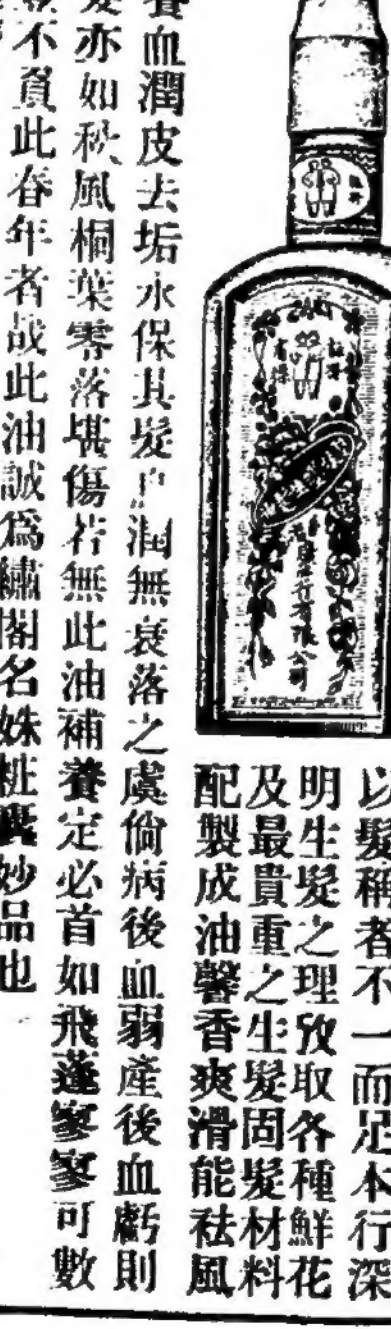 以髮稱者不一而足本行深
明生髮之理攷取各種鮮花
及最貴重之生髮固髮材料
配製成油馨香爽滑能祛風
養血潤皮去垢永保其髮 潤無衰落之虞倘病後血弱產後血虧則
髮亦如秋風桐葉零落堪傷若無此油補養定必首如飛蓬寥寥可數
不負此春年者故此油誠為繡閣名姝粧奩妙品也
行有限公司